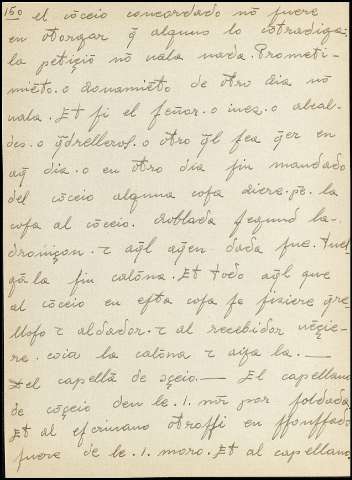 150 el cōceio concordado nō fuere
en otorgar q̄ alguno lo cōtradiga.
la petiçiō nō uala nada. Prometi-
miēto. o donamiēto de otro dia nō
uala. Et ſi el ſeñor. o iuez. o alcal-
des. o q̄drelleroſ. o otro q̄l ſea q̄er en
aq̄l dia. o en otro dia ſin mandado
del cōceio alguna coſa diere. pe. la
coſa al cōceio. doblada ſegund la-
droniçon. τ aq̄l aq̄en dada fue. tuel
gāla ſin calōna. Et todo aq̄l que
al cōceio en eſta coſa ſe fiziere q̄re-
lloſo τ al dador. τ al recebidor uēçie-
re. coia la calōna τ aiſa la. —
el capellā de cōçeio — El capellano
de cōçeio den le .1. mr̄ por ſoldada
Et al eſcriuano otroſſi en
fuere de le .1. moro. Et al capellano